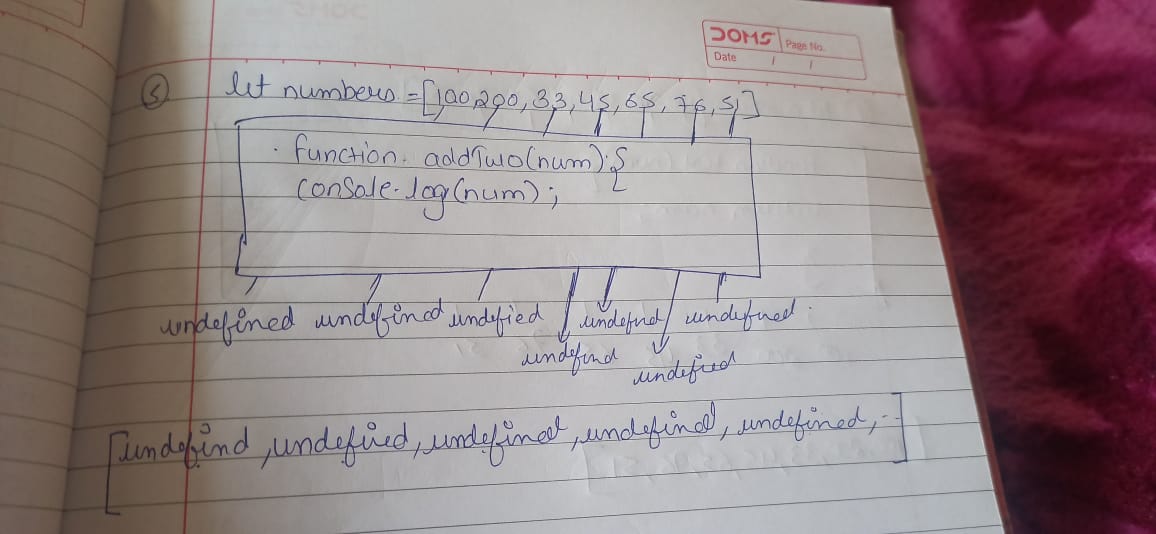 DOMS Page No.
Date / /
5 let numbers = [100,200, 33, 45, 65, 76, 51]
function. addTwo(num) {
console.log(num);
undefined undefined undefied undefnd undefined.
undefind undefied
[undefind, undefied, undefined, undefined, undefined, --]